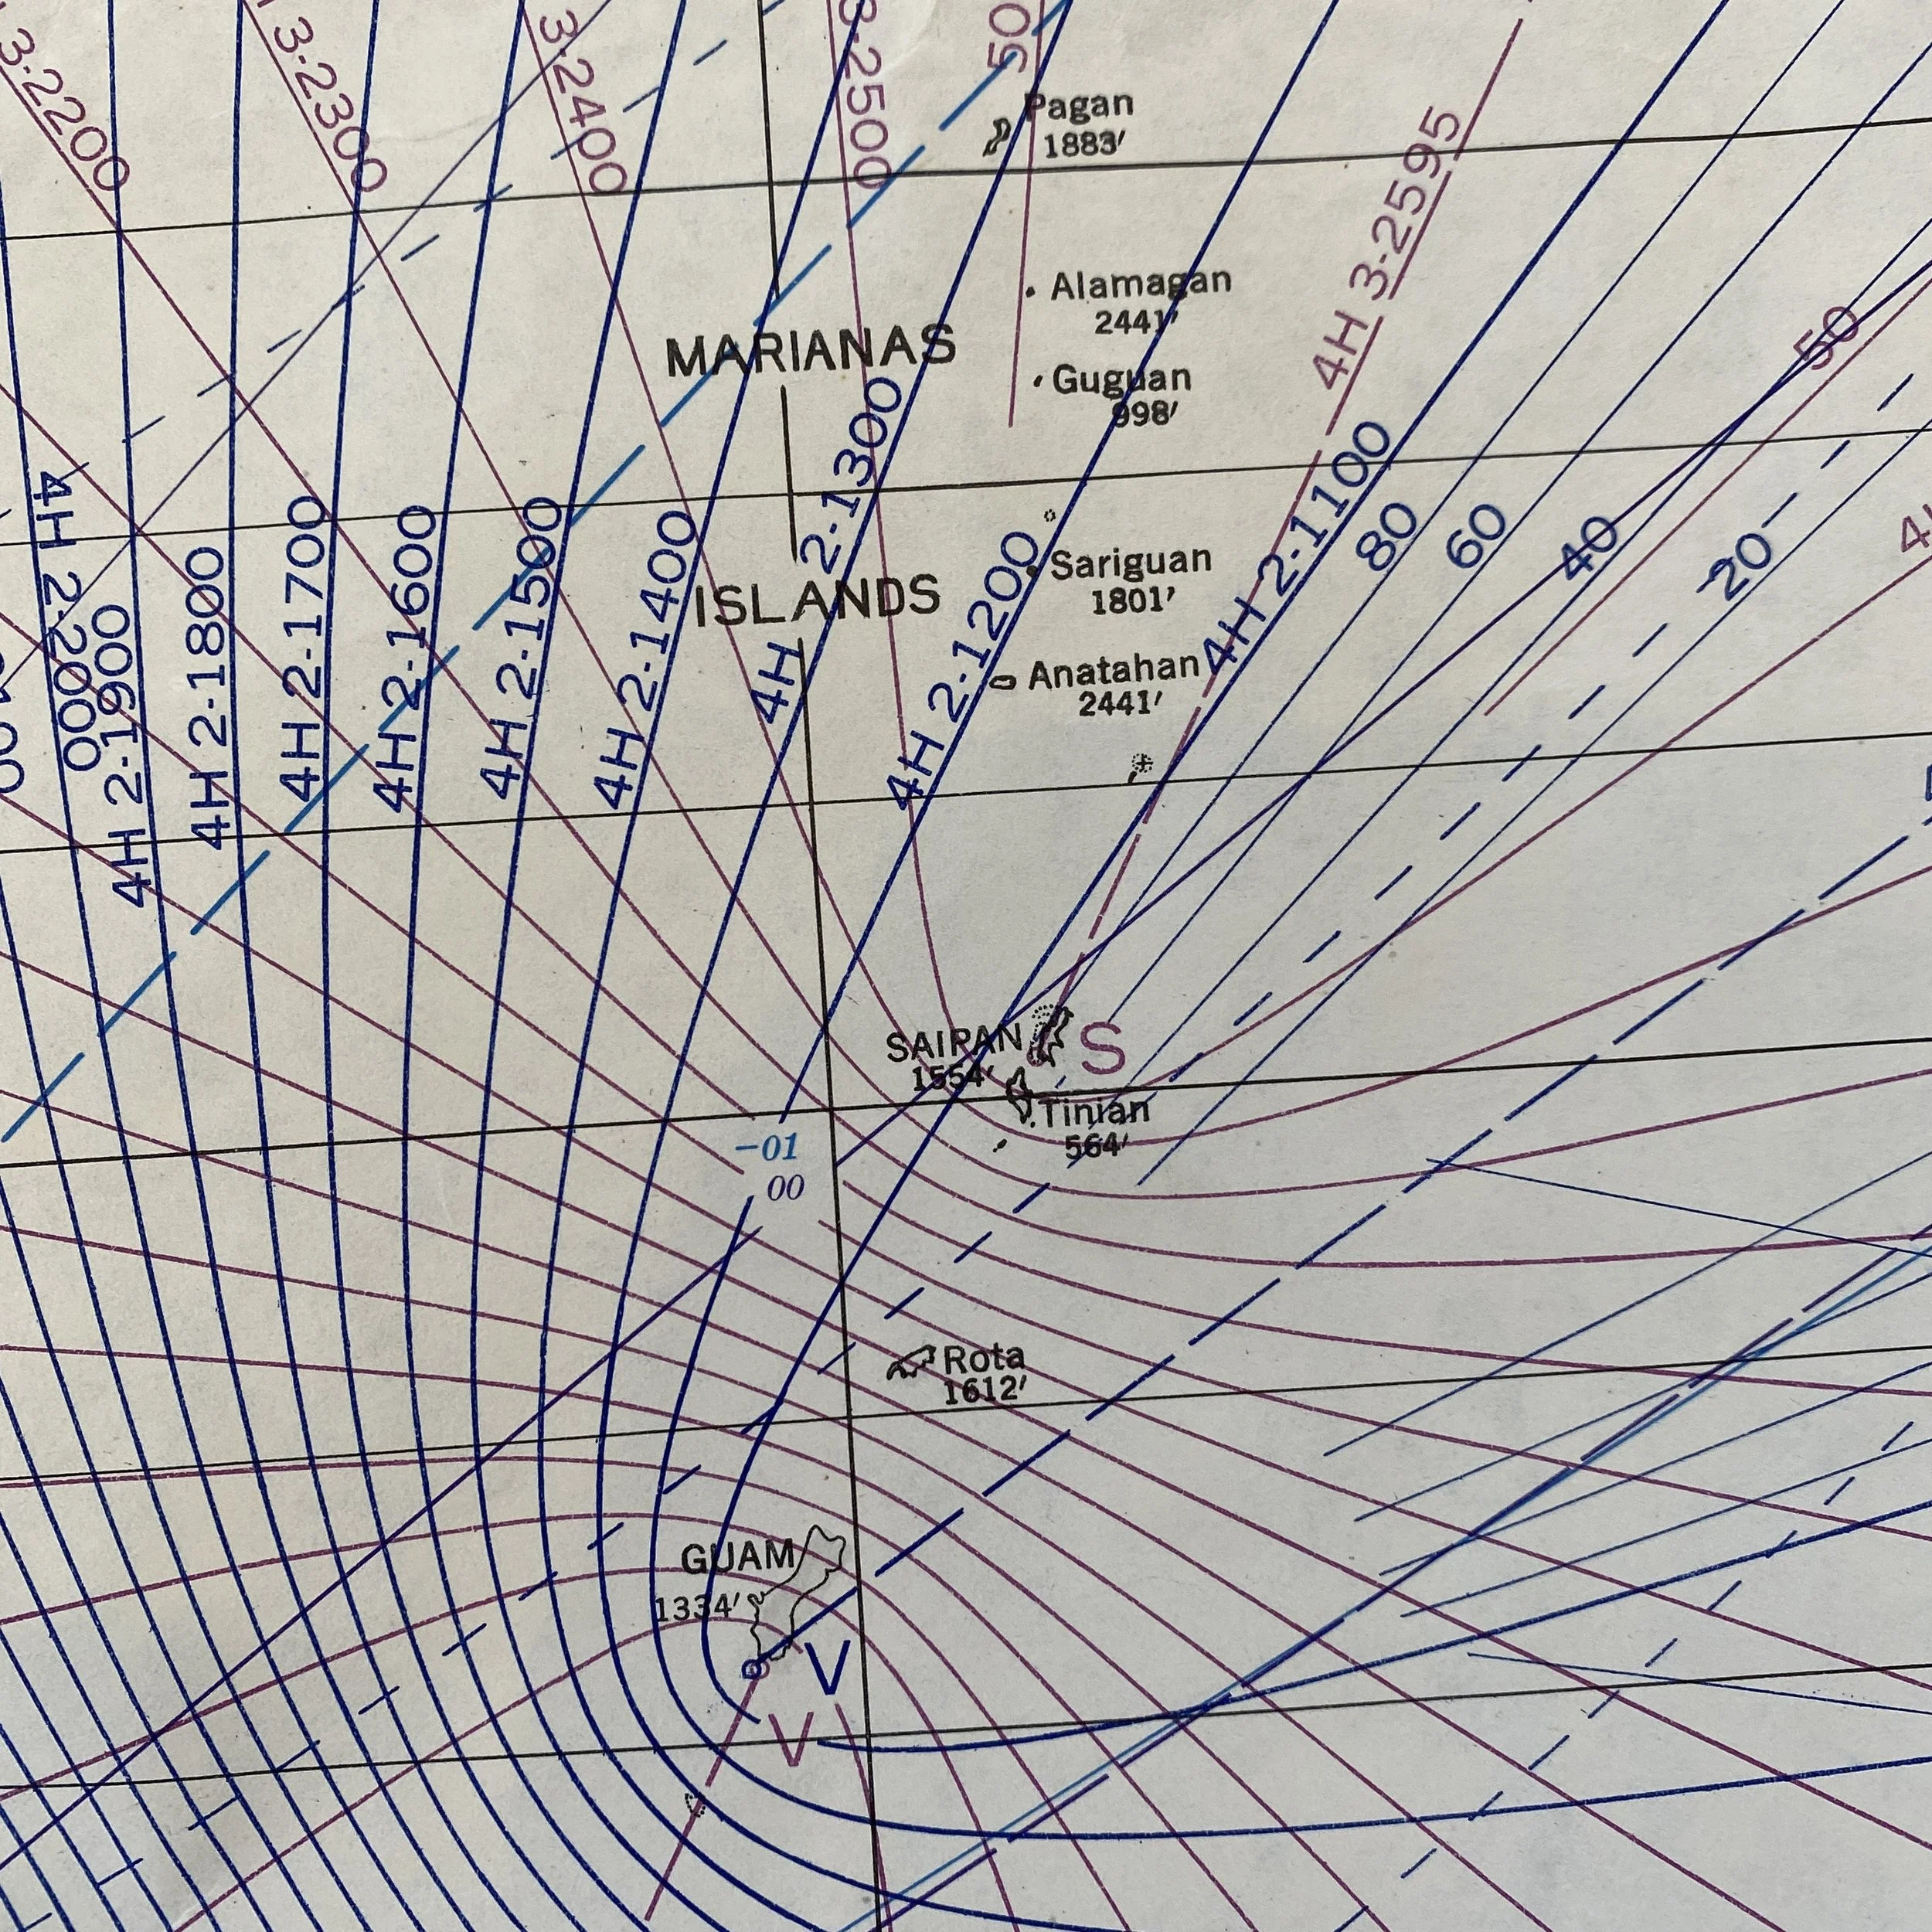 3-2200
3-2300
3-2400
3-2500
50
Pagan
1883'
4H 3-2595
Alamagan
2441'
MARIANAS
Guguan
998'
50
4H 2-2000
4H 2-1900
4H 2-1800
4H 2-1700
4H 2-1600
4H 2-1500
4H 2-1400
4H 2-1300
4H 2-1200
4H 2-1100
80
60
40
20
Sariguan
1801'
ISLANDS
Anatahan
2441'
SAIPAN
1554'
S
Tinian
564'
-01
00
Rota
1612'
GUAM
1334'
V
V